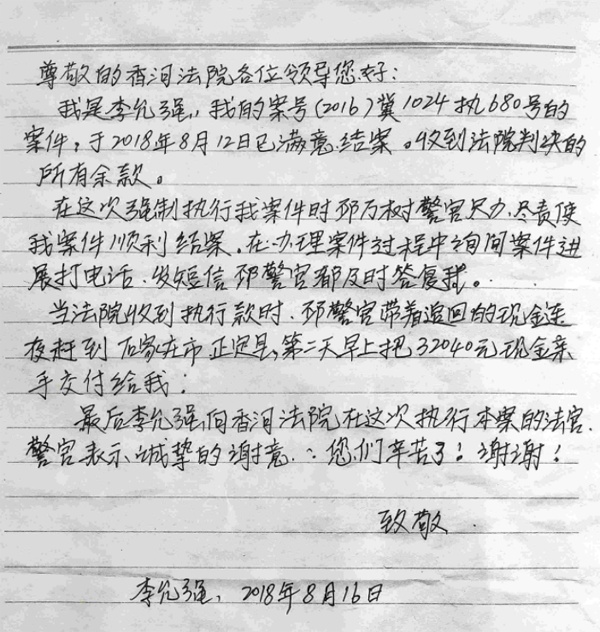 尊敬的香河法院各位领导您好:
我是李允强,我的案号(2016)冀1024执680号的
案件,于2018年8月12日已满意结案。收到法院判决的
所有余款。
在这次强制执行我案件时邵万树警官尽力、尽责使
我案件顺利结案,在办理案件过程中询问案件进
展打电话、发短信邵警官都及时答复我。
当法院收到执行款时,邵警官带着追回的现金连
夜赶到石家庄市正定县,第二天早上把32040元现金亲
手交付给我!
最后李允强向香河法院在这次执行本案的法官、
警官表示诚挚的谢意:您们辛苦了!谢谢!
致敬
李允强、2018年8月16日